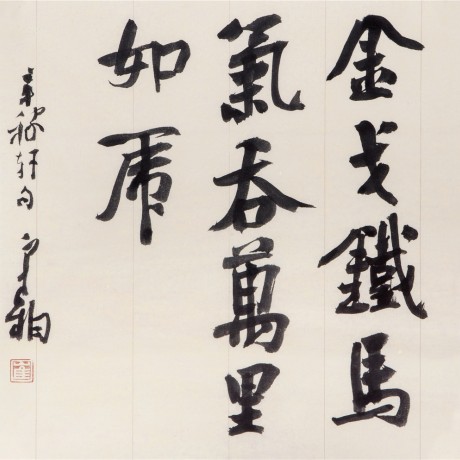 金戈鐵馬
氣吞萬里
如虎
辛稼轩句